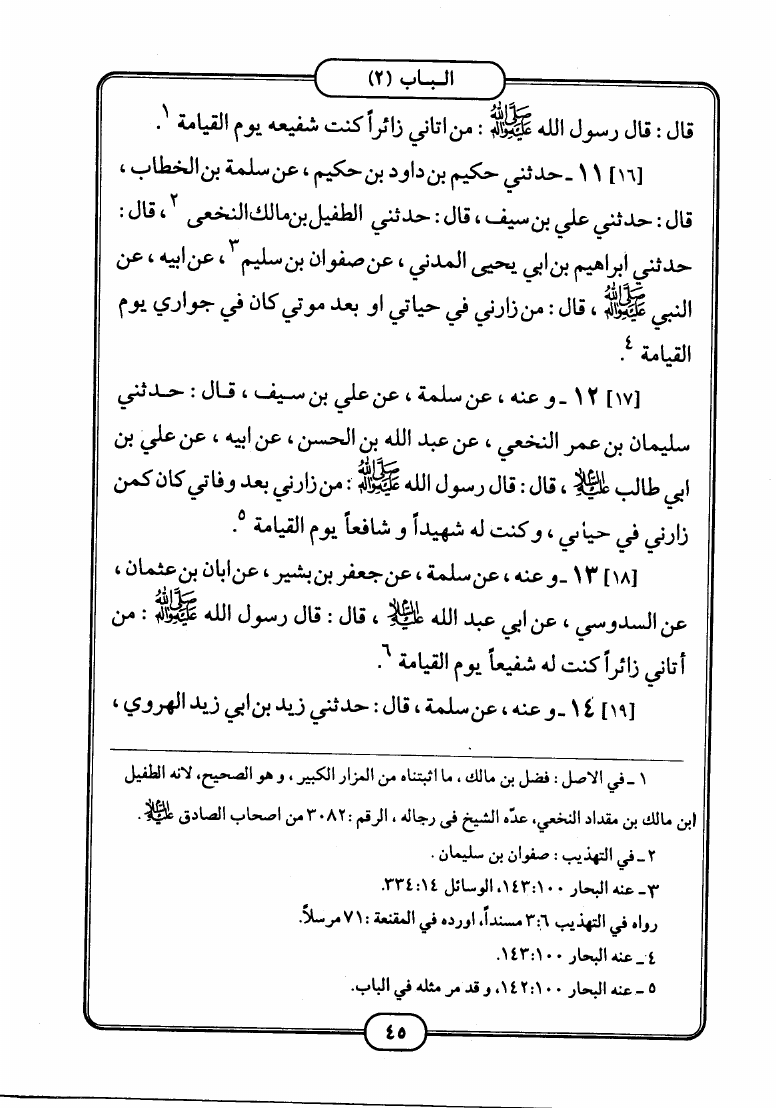 الـبـاب (٢)
قال : قال رسول الله ﷺ : من اتاني زائراً كنت شفيعه يوم القيامة ١.
[١٦] ١١ ـ حدثني حكيم بن داود بن حكيم ، عن سلمة بن الخطاب ،
قال : حدثني علي بن سيف ، قال : حدثني الطفيل بن مالك النخعى ٢، قال :
حدثني ابراهيم بن ابي يحيى المدني ، عن صفوان بن سليم ٣، عن ابيه ، عن
النبي ﷺ ، قال : من زارني في حياتي او بعد موتي كان في جواري يوم
القيامة ٤.
[١٧] ١٢ ـ و عنه ، عن سلمة ، عن علي بن سـيف ، قـال : حـدثني
سليمان بن عمر النخعي ، عن عبد الله بن الحسن ، عن ابيه ، عن علي بن
ابي طالب عليه السلام ، قال : قال رسول الله ﷺ : من زارني بعد وفاتي كان كمن
زارني في حياتي ، و كنت له شهيداً و شافعاً يوم القيامة ٥.
[١٨] ١٣ ـ و عنه ، عن سلمة ، عن جعفر بن بشير ، عن ابان بن عثمان ،
عن السدوسي ، عن ابي عبد الله عليه السلام ، قال : قال رسول الله ﷺ : من
أتاني زائراً كنت له شفيعاً يوم القيامة ٦.
[١٩] ١٤ ـ و عنه ، عن سلمة ، قال : حدثني زيد بن ابي زيد الهروي ،
١ ـ في الاصل : فضل بن مالك ، ما اثبتناه من المزار الكبير ، و هو الصحيح، لانه الطفيل
ابن مالك بن مقداد النخعي، عدّه الشيخ فى رجاله ، الرقم : ٣٠٨٢ من اصحاب الصادق عليه السلام .
٢ ـ في التهذيب : صفوان بن سليمان .
٣ ـ عنه البحار ١٠٠:١٤٣، الوسائل ١٤:٣٣٤.
رواه في التهذيب ٦:٣ مسنداً، اورده في المقنعة : ٧١ مرسلاً.
٤ ـ عنه البحار ١٠٠:١٤٣.
٥ ـ عنه البحار ١٠٠:١٤٢، و قد مر مثله في الباب.
٤٥